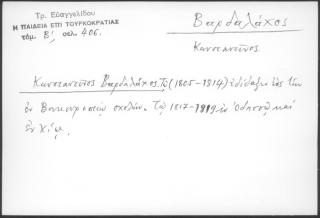 Τρ. Εὐαγγελίδου
Η ΠΑΙΔΕΙΑ ΕΠΙ ΤΟΥΡΚΟΚΡΑΤΙΑΣ
τόμ. Β', σελ. 406.
Βαρδαλάχος
Κωνσταντῖνος
Κωνσταντῖνος Βαρδαλάχος. Τῷ (1805-1814) ἐδίδαξε εἰς τὴν
ἐν Βουκουρεστίῳ σχολήν. Τῷ 1817-1819 ἐν Ὀδησσῷ καὶ
ἐν Χίῳ.